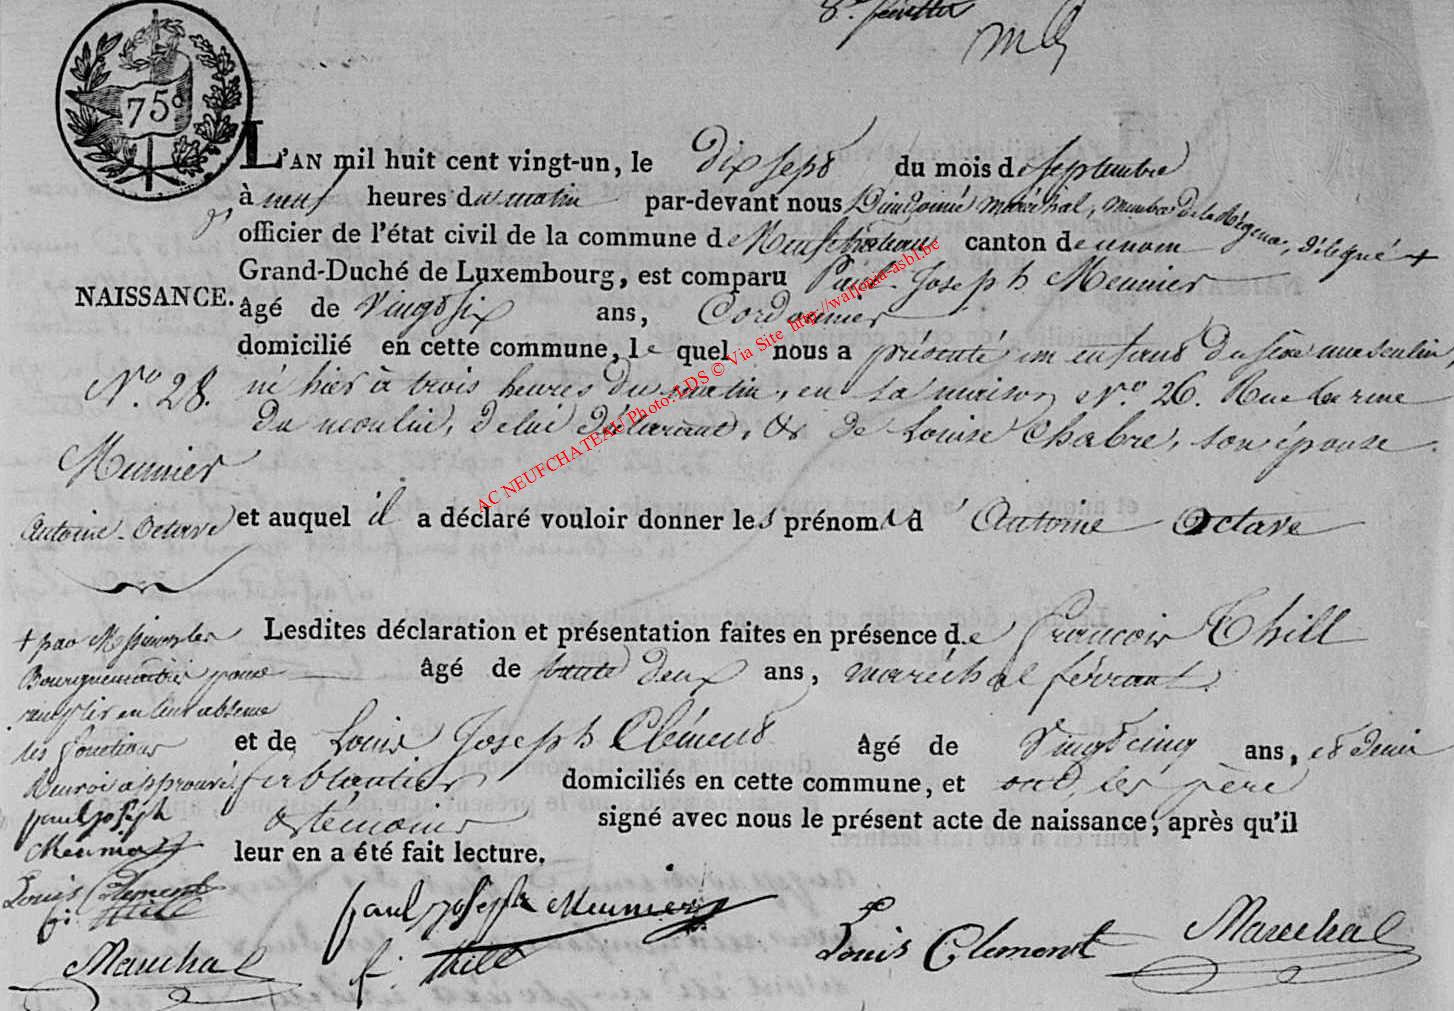 75c
L'AN mil huit cent vingt-un, le Dix sept du mois de septembre
à neuf heures du matin par-devant nous Dieudonné Maréchal, membre de la Régence, délégué +
officier de l'état civil de la commune de Neufchateau canton du nom
Grand-Duché de Luxembourg, est comparu Paul Joseph Meunier
NAISSANCE.
âgé de Vingt six ans, Cordonnier
domicilié en cette commune, le quel nous a présenté un enfant du sexe masculin
N.o 28. né hier à trois heures du matin, en sa maison N.o 26. Rue
du moulin, de lui déclarant, & de Louise Chabre, son épouse.
Meunier
Antoine-Octave
et auquel il a déclaré vouloir donner les prénoms d'Antoine Octave
Lesdites déclaration et présentation faites en présence de François Thill
âgé de trente deux ans, maréchal ferrant
et de Louis Joseph Clément âgé de Vingt cinq ans, et demi
ferblantier domiciliés en cette commune, et ont, les père
et témoins signé avec nous le présent acte de naissance, après qu'il
leur en a été fait lecture.
+ par Messieurs les
Bourguemaîtres pour
remplir en leur absence
les fonctions
Renvoi approuvé
paul joseph
Meunier
Louis Clement
f: thill
Marechal
paul joseph Meunier
f: thill
Louis Clement
Marechal
AC NEUFCHATEAU Photo: LDS © Via Site http://wallonia-asbl.be